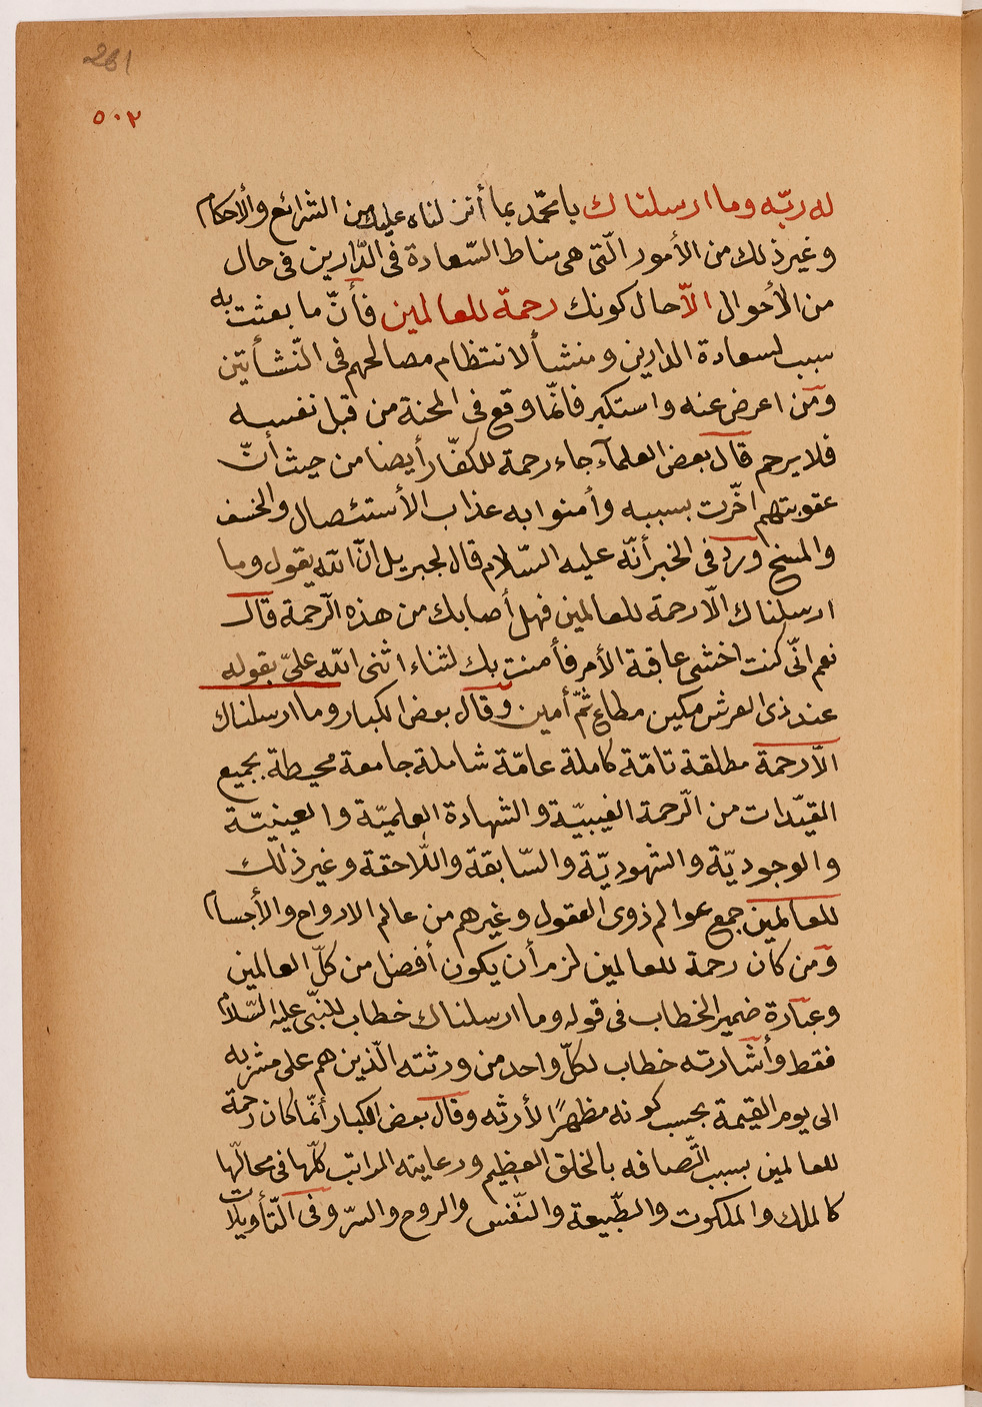 261
٥٠٢
له ربّه وما ارسلناك يا محمّد بما أنزلناه عليك من الشرائع والأحكام
وغير ذلك من الأمور الّتى هى مناط السّعادة فى الدّارين فى حال
من الأحوال الاّ حال كونك رحمة للعالمين فأنّ ما بعثت به
سبب لسعادة الدارين ومنشأ لانتظام مصالحهم فى النّشأتين
ومن اعرض عنه واستكبر فانّما وقع فى المحنة من قبل نفسه
فلا يرحم قال بعض العلمآء جاء رحمة للكفّار أيضا من حيث أنّ
عقوبتهم اخّرت بسببه وأمنوا به عذاب الأستئصال والخسف
والمسخ ورد فى الخبر أنّه عليه السّلام قال لجبريل انّ الله يقول وما
ارسلناك الّا رحمة للعالمين فهل أصابك من هذه الرّحمة قال
نعم انّى كنت اخشى عاقبة الأمر فأمنت بك لثناء اثنى الله علىّ بقوله
عند ذى العرش مكين مطاع ثمّ أمين وقال بعض الكبار وما ارسلناك
الّا رحمة مطلقة تامّة كاملة عامّة شاملة جامعة محيطة بجميع
القيّدات من الرّحمة الغيبيّة والشهادة العلميّة والعينيّة
والوجوديّة والشهوديّة والسّابقة واللّاحقة وغير ذالك
للعالمين جمع عوالم ذوى العقول وغيرهم من عالم الارواح والأجسام
ومن كان رحمة للعالمين لزم أن يكون أفضل من كلّ العالمين
وعبارة ضمير الخطاب فى قوله وما ارسلناك خطاب للنبّى عليه السّلام
فقط وأشارته خطاب لكلّ واحد من ورثته الّذين هم على مشربه
الى يوم القيمة بحسب كونه مظهرًا لأرثه وقال بعض الكبار أنّما كان رحمة
للعالمين بسبب اتّصافه بالخلق العظيم ورعايته المراتب كلّها فى محالّها
كالملك والملكوت والطّبيعة والنّفس والروح والسرّ وفى التّأويلات